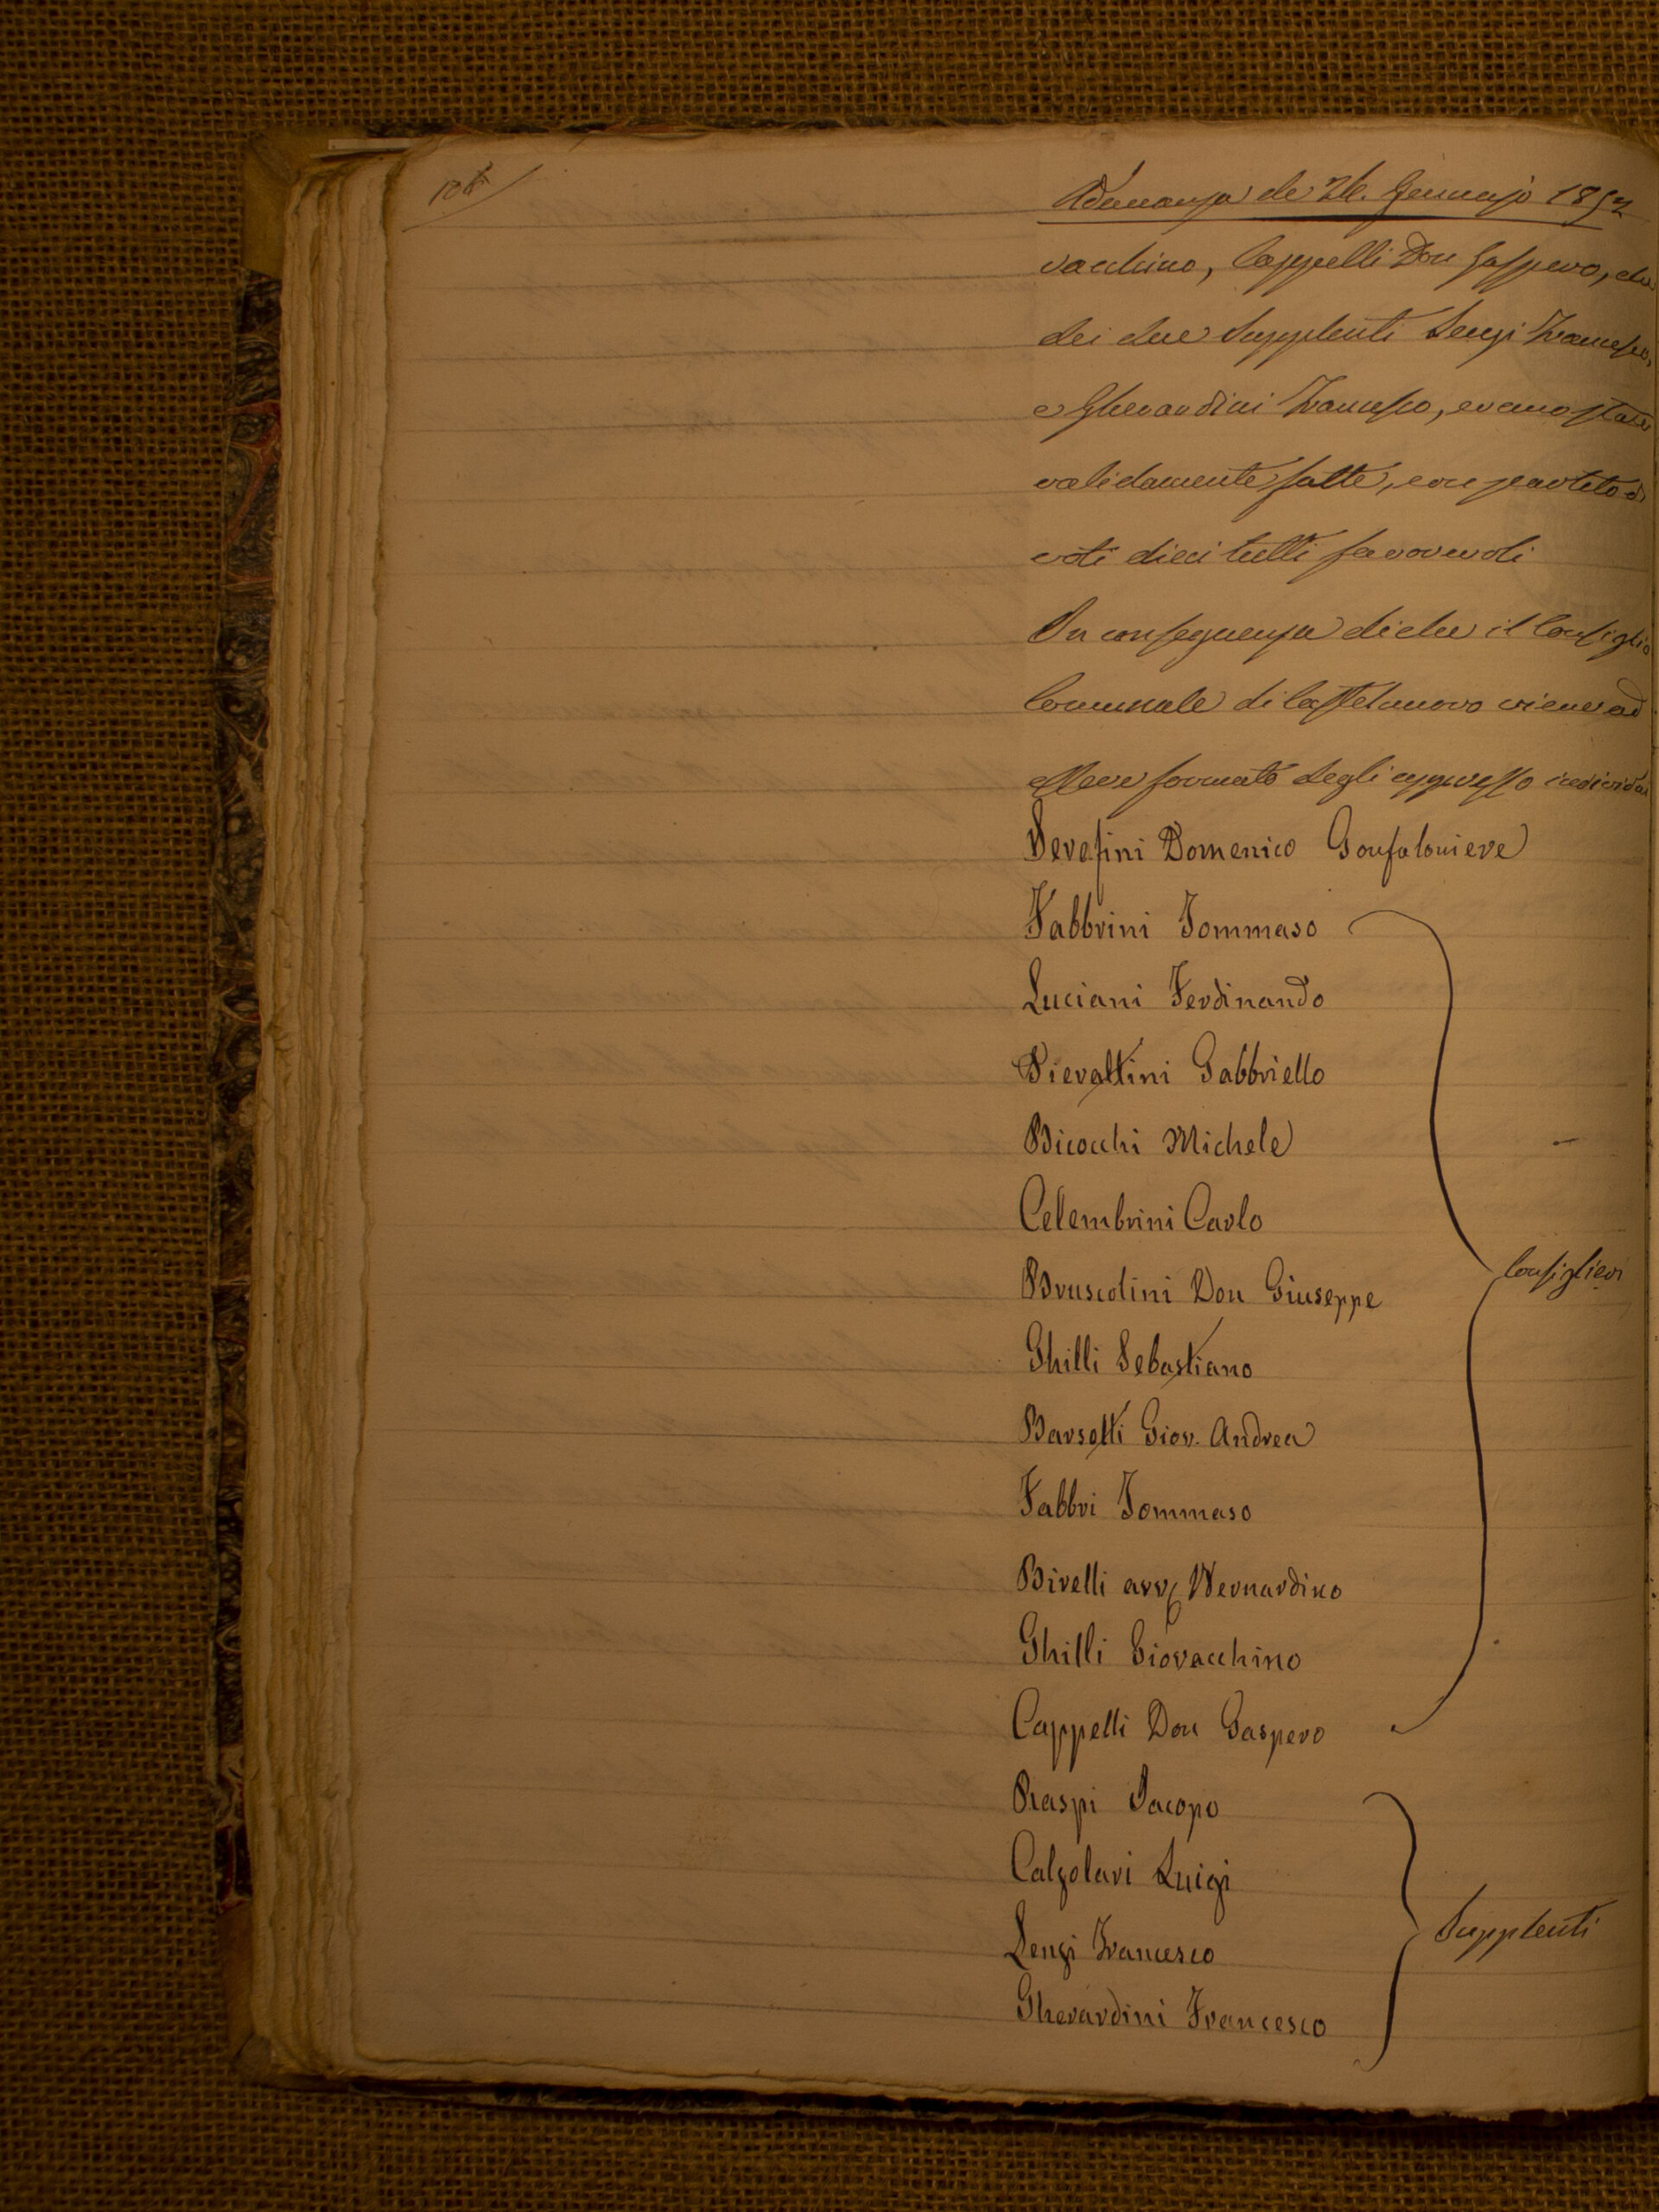 Adunanza de 26. Gennajo 1852
vacchino, Cappelli Don Gasspero, che
dei due Supplenti Lenzi Francesco,
e Gherardini Francesco, erano state
validamente fatte, con partito di
voti dieci tutti favorevoli
In conseguenza di che il Consiglio
Comunale di Castelnuovo viene ad
essere formato degli appresso individui
Serafini Domenico Gonfaloniere
Fabbrini Tommaso
Luciani Ferdinando
Pierattini Gabbriello
Bicocchi Michele
Celembrini Carlo
Bruscolini Don Giuseppe
Consiglieri
Ghilli Sebastiano
Barsotti Giov. Andrea
Fabbri Tommaso
Birelli avv. Bernardino
Ghilli Giovacchino
Cappelli Don Gaspero
Raspi Jacopo
Calzolari Luigi
Supplenti
Lenzi Francesco
Gherardini Francesco